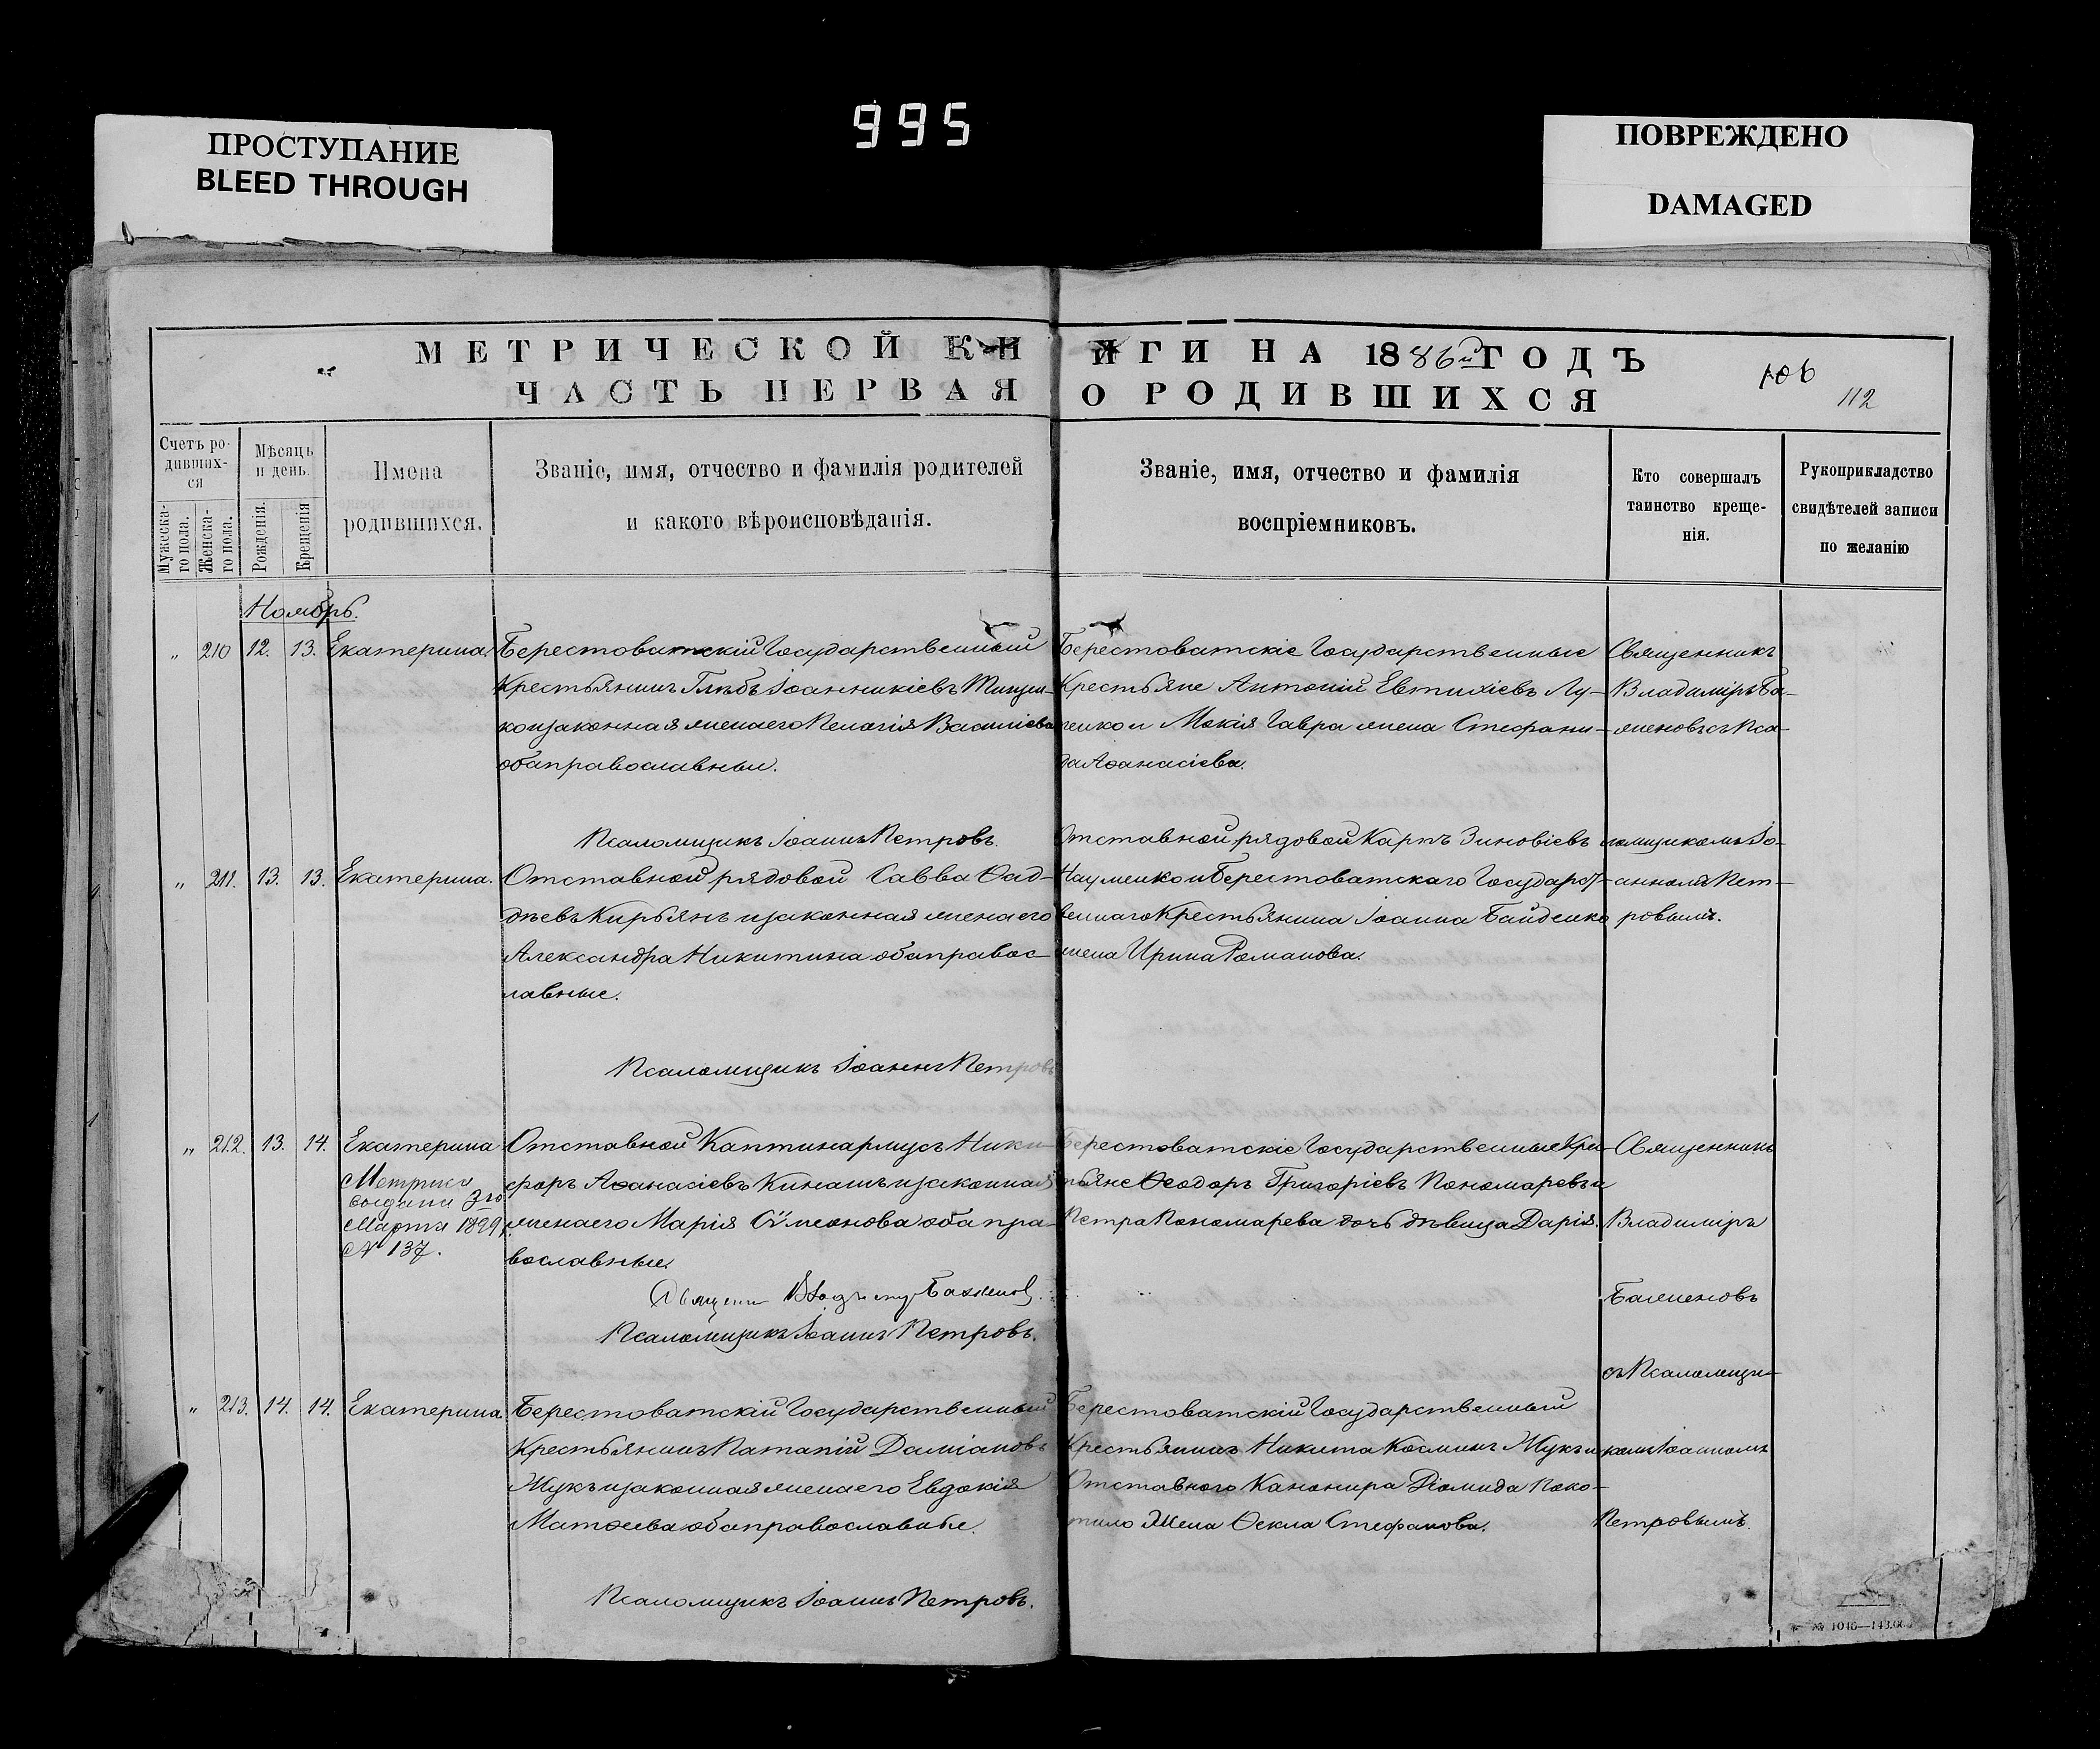 995
ПРОСТУПАНИЕ
BLEED THROUGH
ПОВРЕЖДЕНО
DAMAGED
МЕТРИЧЕСКОЙ КНИГИ НА 1886й ГОДЪ
ЧАСТЬ ПЕРВАЯ О РОДИВШИХСЯ
106
112
Счетъ ро-
дивших-
ся
Мужеска-
го пола.
Женска-
го пола.
Мѣсяцъ
и день.
Рожденія.
Крещенія
Имена
родившихся.
Званіе, имя, отчество и фамилія родителей
и какого вѣроисповѣданія.
Званіе, имя, отчество и фамилія
воспріемниковъ.
Кто совершалъ
таинство креще-
нія.
Рукоприкладство
свидѣтелей записи
по желанію
Ноябрь.
" 210 12. 13. Екатерина.
Берестоватскій Государственный
Крестьянинъ Глѣбъ Іоанникіевъ
и законная жена его Пелагія Василіева
оба православные.
Псаломщикъ Іоаннъ Петровъ.
Берестоватскіе Государственные
Крестьяне Антоній Евтихіевъ Лу-
ценко и Мокія Гавра жена Стефани-
да Аѳанасіева.
Священникъ
Владиміръ Ба-
женовъ съ Пса-
ломщикомъ Іо-
анномъ Пет-
ровымъ.
" 211. 13. 13. Екатерина.
Отставной рядовой Савва Ѳад-
дѣевъ Кирьянъ и законная жена его
Александра Никитина оба правос-
лавные.
Псаломщикъ Іоаннъ Петровъ
Отставной рядовой Карпъ Зиновіевъ
Науменко и Берестоватскаго Государст-
веннаго Крестьянина Іоанна Байденко
жена Ирина Романова.
" 212. 13. 14. Екатерина
Метрика
выдана 3го
Марта 1899 г.
№ 137.
Отставной Каптинармусъ Ники-
форъ Аѳанасіевъ Кинашъ и законная
жена его Марія Сѵмеонова оба пра-
вославные.
Священ Баженов.
Псаломщикъ Іоаннъ Петровъ.
Берестоватскіе Государственные Кре-
стьяне Ѳеодоръ Григоріевъ Пономаревъ и
Петра Пономарева дочь дѣвица Дарія.
Священникъ
Владиміръ
Баженовъ
съ Псаломщи-
комъ Іоанномъ
Петровымъ.
" 213. 14. 14. Екатерина.
Берестоватскій Государственный
Крестьянинъ Патапій Даміановъ
Жукъ и законная жена его Евдокія
Матѳеева оба православные.
Псаломщикъ Іоаннъ Петровъ.
Берестоватскій Государственный
Крестьянинъ Никита Косминъ Жукъ и
Отставного Канонира Діомида Поко-
тило Жена Ѳекла Стефанова.